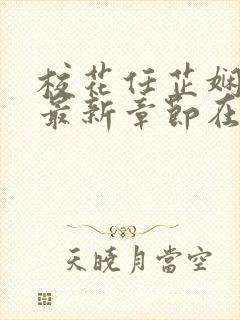 校花任芷娴
最新章节在
天曉月當空